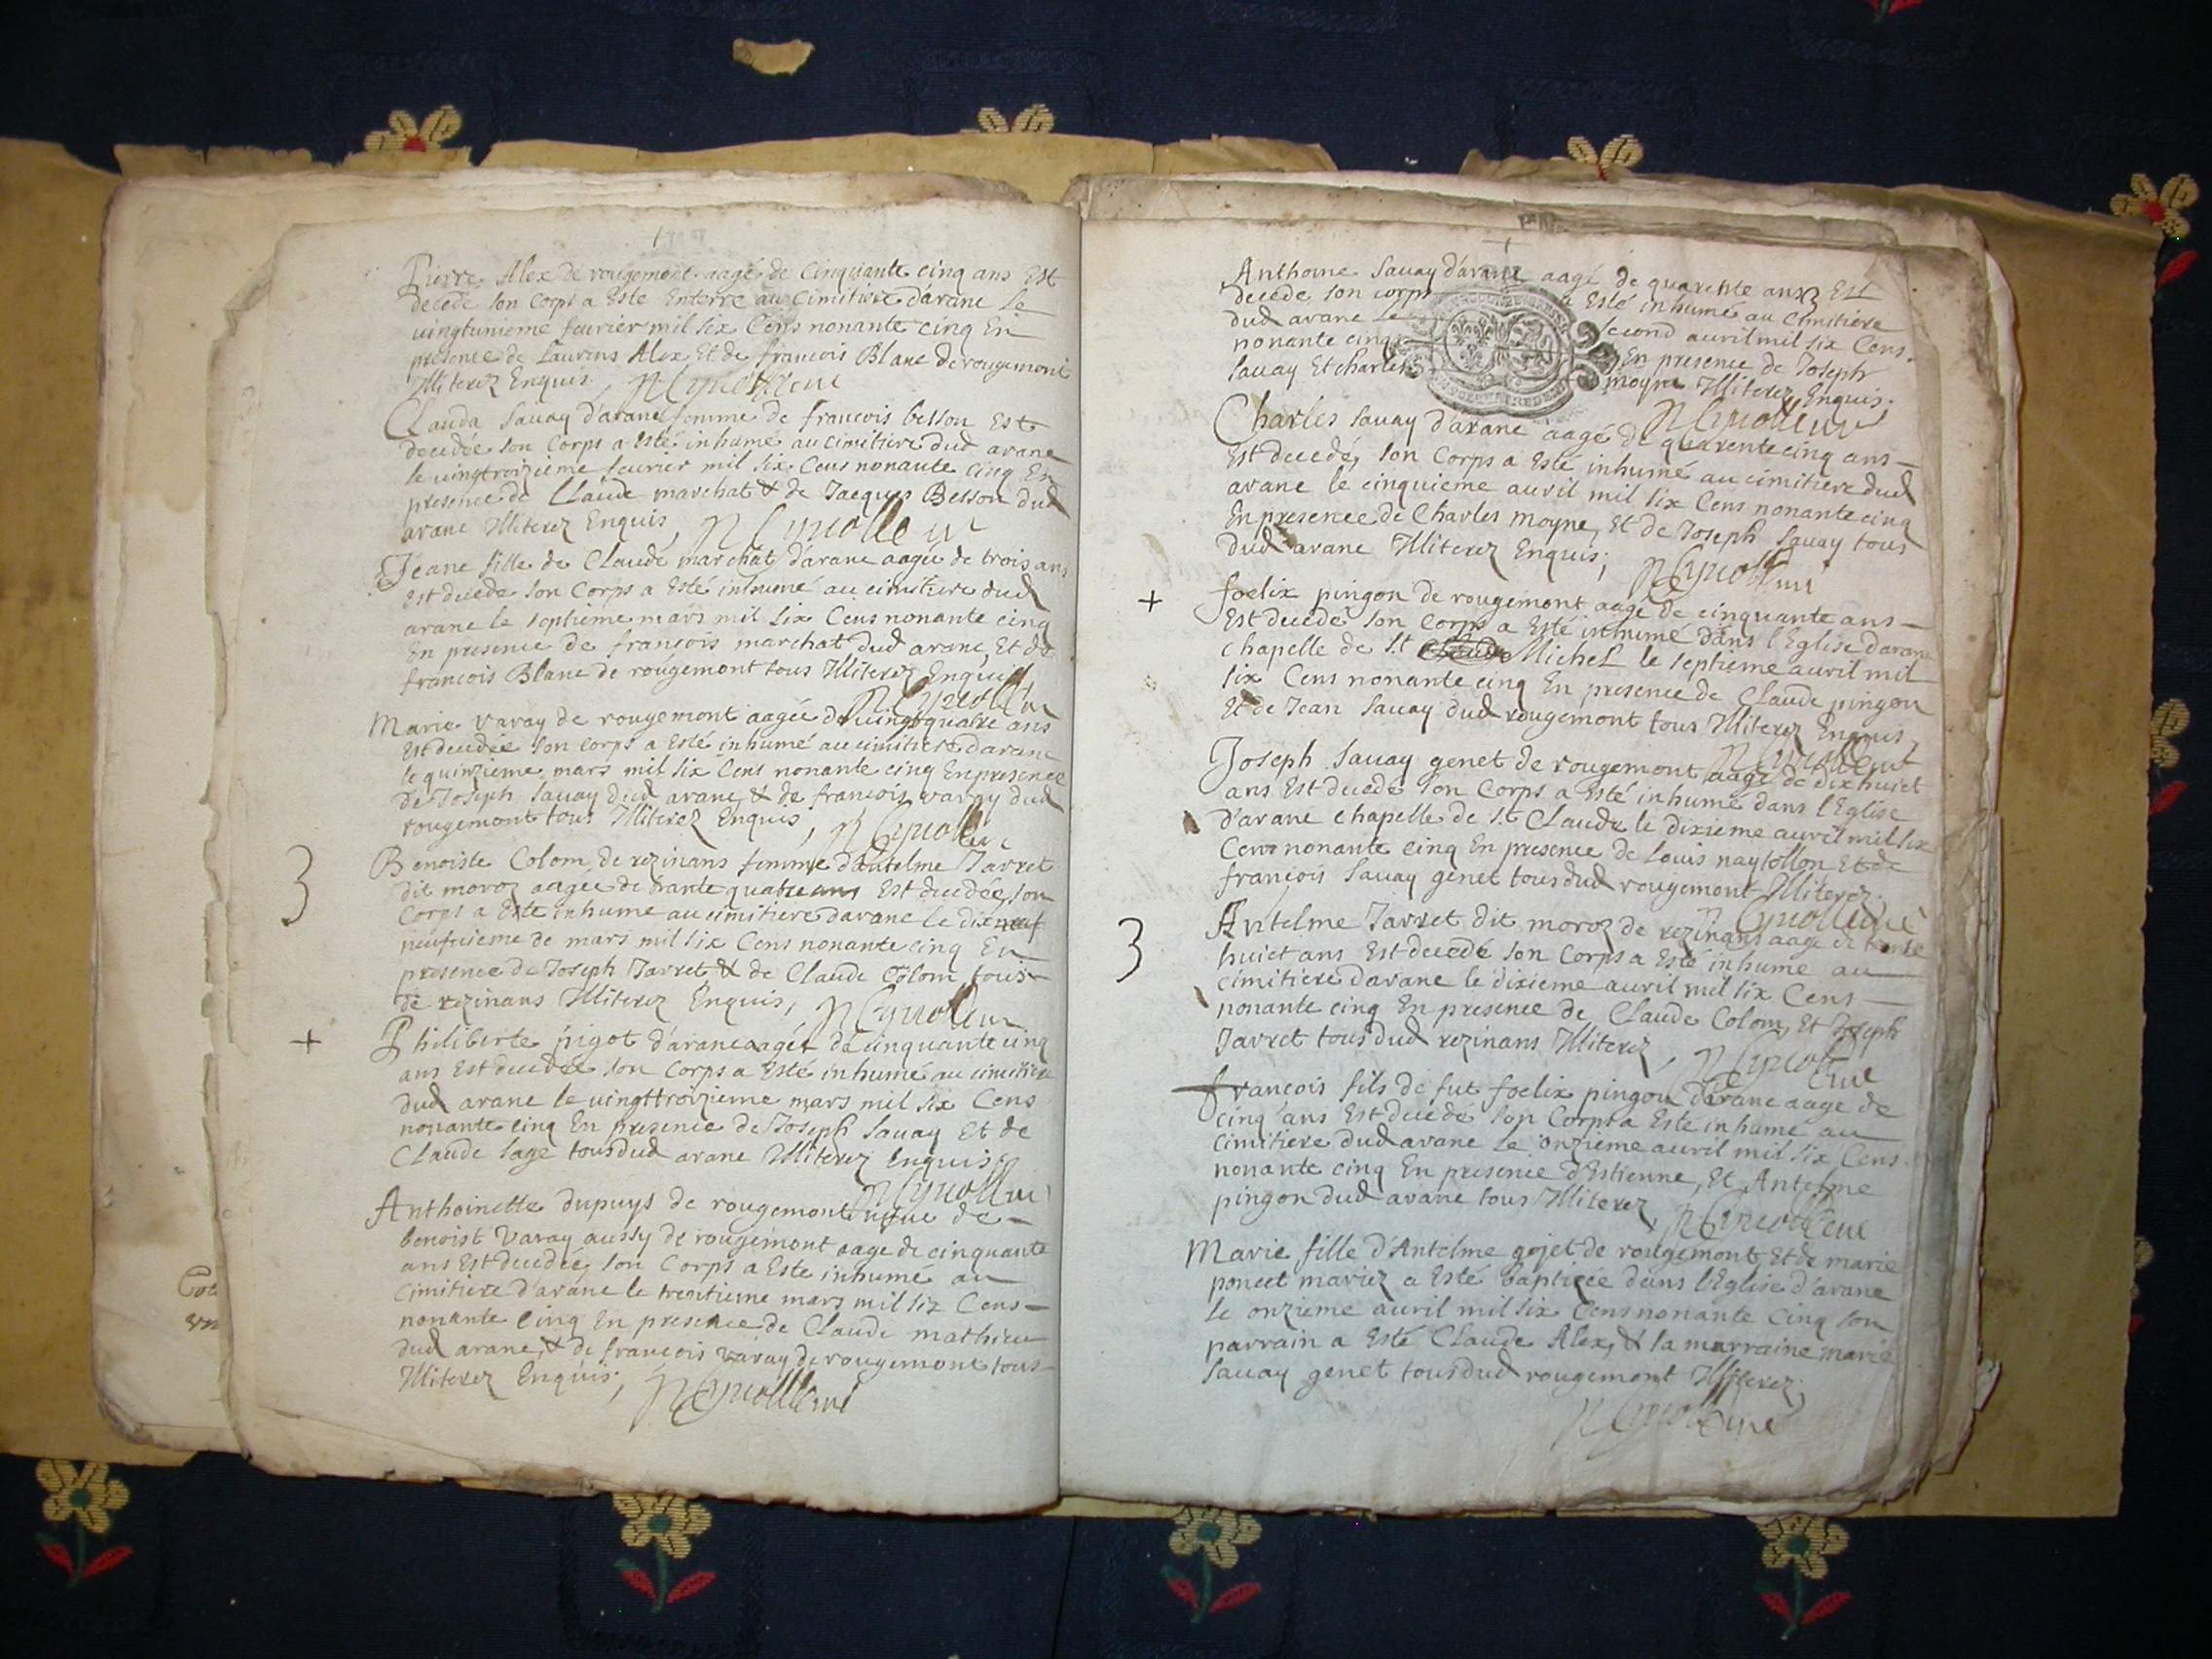 Pierre Alex de rougemont aagé de Cinquante cinq ans Est
decedé son Corps a Esté Enterré au Cimitiere d'arane le
vingtunieme feurier mil six Cens nonante cinq En
presence de Laurens Alex Et de francois Blanc de rougemont
Illiterez Enquis,
Clauda sauay d'arane femme de francois besson Est
decedée son Corps a Esté inhumé au cimitiere dud arane
le vingtroizieme feurier mil six Cens nonante cinq En
presence de Claude marchat & de Jacques Besson dud
arane Illiterez Enquis,
Jeane fille de Claude marchat d'arane aagée de trois ans
Est decedé son Corps a Esté inhumé au cimitiere dud
arane le septieme mars mil six Cens nonante cinq
En presence de françois marchat dud arane, Et de
francois Blanc de rougemont tous Illiterez Enquis
Marie varay de rougemont aagée de vingtquatre ans
Est decedée son corps a Esté inhumé au cimitiere d'arane
le quinzieme mars mil six Cens nonante cinq En presence
de Joseph sauay dud arane, & de francois varay dud
rougemont tous Illiterez Enquis,
3
Benoiste Colom de rezinans femme d'antelme Jarret
dit moroz aagée de trante quatre ans Est decedée, son
Corps a Esté inhumé au cimitiere d'arane le dixneuf
neufuieme de mars mil six Cens nonante cinq En
presence de Joseph Jarret & de Claude Colom, tous
de rezinans Illiterez Enquis,
+
Philiberte pigot d'arane aagée de cinquante cinq
ans Est decedée son Corps a Esté inhumé au cimitiere
dud arane le vingttroizieme mars mil six Cens
nonante cinq En presence de Joseph sauay Et de
Claude sage tous dud arane Illiterez Enquis,
Anthoinette dupuys de rougemont de
benoist varay aussy de rougemont aage de cinquante
ans Est decedée, son Corps a Esté inhumé au
Cimitiere d'arane le trentieme mars mil six Cens
nonante Cinq En presence de Claude mathieu
dud arane, & de francois varay de rougemont tous
Illiterez Enquis,
Anthoine sauay d'arane aagé de quarente ans Est
decedé son corps a Esté inhumé au Cimitiere
dud arane le second auril mil six Cens
nonante cinq En presence de Joseph
sauay Et charles moyne Illiterez Enquis.
Charles sauay d'arane aagé de quarente cinq ans
Est decedé, son Corps a Esté inhumé au cimitiere dud
arane le cinquieme auril mil six Cens nonante cinq
En presence de Charles moyne, Et de Joseph sauay tous
dud arane Illiterez Enquis,
+
foelix pingon de rougemont aagé de cinquante ans
Est decedé son Corps a Esté inhumé dans l'Eglise d'arane
chapelle de St Michel le septieme auril mil
six Cens nonante cinq En presence de Claude pingon
Et de Jean sauay dud rougemont tous Illiterez Enquis,
Joseph sauay genet de rougemont aagé de dixhuict
ans Est decedé son Corps a Esté inhumé dans l'Eglise
d'arane chapelle de St Claude le dixieme auril mil six
Cens nonante cinq En presence de Louis naytollon Et de
françois sauay genet tous dud rougemont Illiterez.
3
Antelme Jarret dit moroz de rezinans aagé de trente
huict ans Est decedé son Corps a Esté inhumé au
cimitiere d'arane le dixieme auril mil six Cens
nonante cinq En presence de Claude Colom, Et Joseph
Jarret tous dud rezinans Illiterez,
francois fils de fut foelix pingon d'arane aagé de
cinq ans Est decedé son Corps a Esté inhumé au
Cimitiere dud arane le onzieme auril mil six Cens
nonante cinq En presence d'Estienne, Et Antelme
pingon dud arane tous Illiterez,
Marie fille d'Antelme gojet de rougemont Et de marie
poncet mariez a Esté baptizée dans l'Eglise d'arane
le onzieme auril mil six Cens nonante cinq son
parrain a Esté Claude Alex, & la marraine marie
sauay genet tous dud rougemont Illiterez,